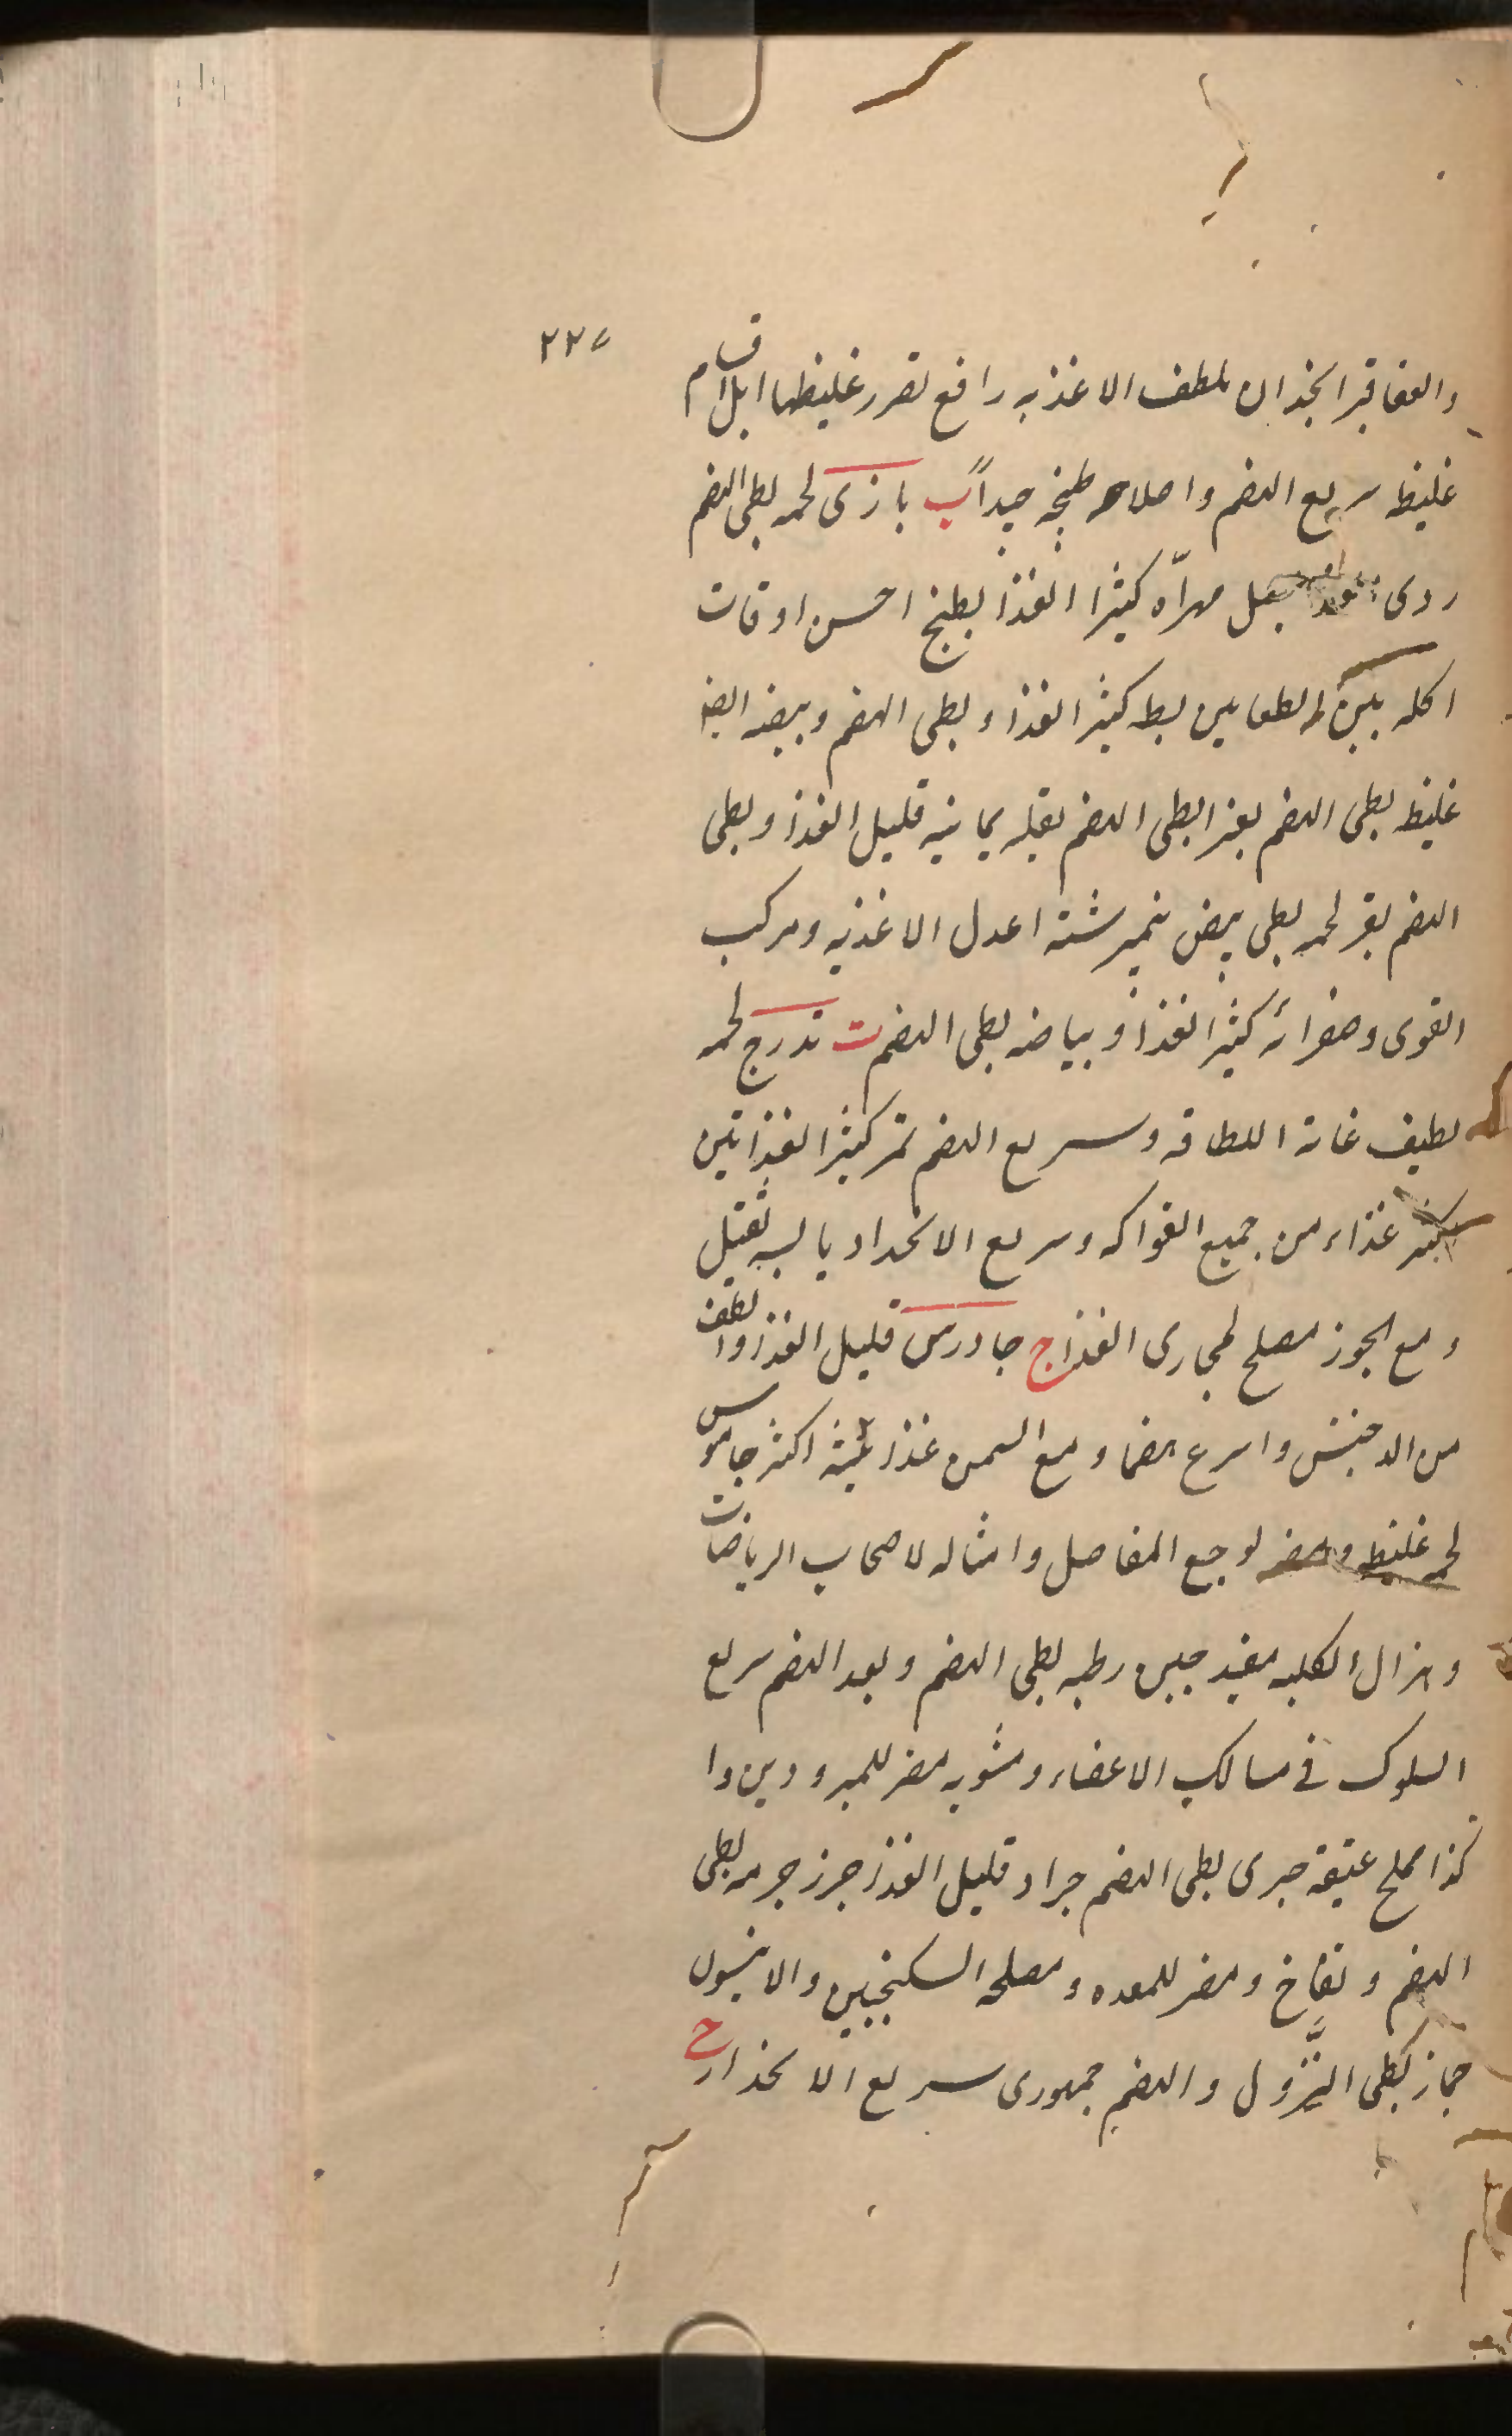 ٢٢٥
والعقاقير انجذان ملطف الاغذيه رافع لضرر غليظها ابل اقسام
غليظ سريع الهضم واصلاحه طبخه جيداً ب بازى لحمه بطى الهضم
ردى بصل مهرّاه كثير الغذا بطيخ احسن اوقات
اكله بين الطعامين بط كثير الغذا وبطى الهضم وبيضه ايضا
غليظ بطى الهضم بطى الهضم بقله يمانيه قليل الغذا وبطى
الهضم بقر لحمه بطى بيض نيمرشته اعدل الاغذيه ومركب
القوى وصفرائه كثير الغذا وبياضه بطى الهضم ت تدرج لحمه
لطيف غاية اللطافه وسريع الهضم تمر كثير الغذا تين
كثير غذاء من جميع الفواكه وسريع الانحدار يابسه ثقيل
ومع الجوز مصلح لمجارى الغذا ج جاورس قليل الغذا والطف
من الدخن واسرع هضما ومع السمن غذائيته اكثر جاموس
لحمه غليظ ومضر لوجع المفاصل وامثاله لاصحاب الرياضات
وهزال الكليه مفيد جبن رطبه بطى الهضم وبعد الهضم سريع
السلوك فى مسالك الاعضاء ومشويه مضر للمبرودين وا
كذا مملح عتيقه جدى بطى الهضم جراد قليل الغذا جزر جرمه بطى
الهضم ونفاخ ومضر للمعده ومصلحه السكنجبين والانيسون
جماز بطى النزول والهضم جمهورى سريع الانحدار ح